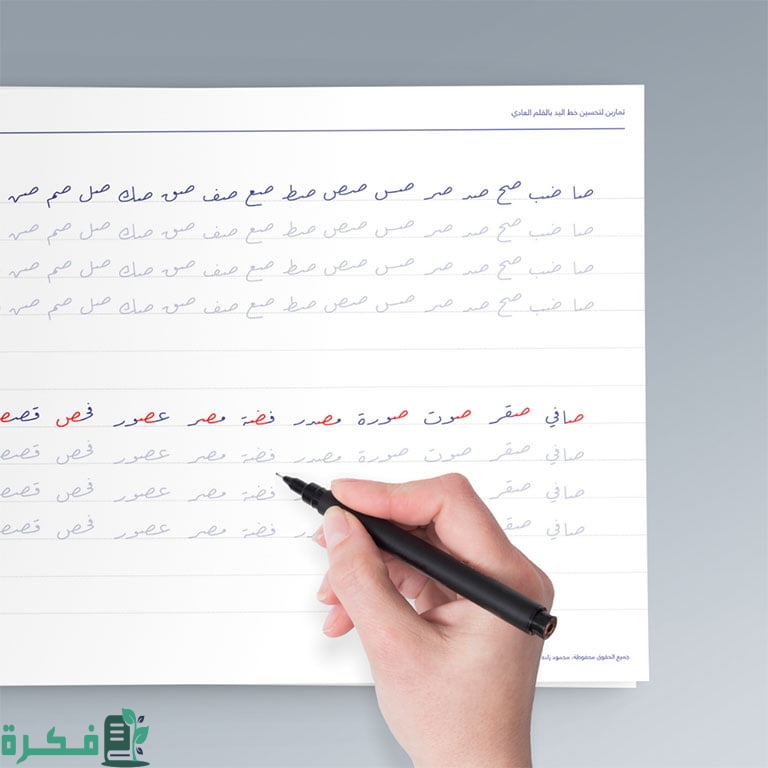 تمارين لتحسين خط اليد بالقلم العادي
صا صب صح صد صر صس صص صط صع صف صق صك صل صم صن
صا صب صح صد صر صس صص صط صع صف صق صك صل صم صن
صا صب صح صد صر صس صص صط صع صف صق صك صل صم صن
صا صب صح صد صر صس صص صط صع صف صق صك صل صم صن
صافي صقر صوت صورة مصدر فضة مصر عصور فحص
صافي صقر صوت صورة مصدر فضة مصر عصور فحص
صافي صقر فضة مصر عصور فحص
صافي صقر فضة مصر عصور فحص
جميع الحقوق محفوظة، محمود زاده
فكرة